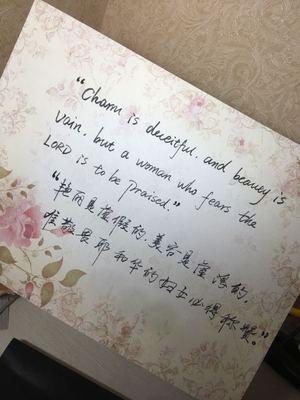 "Charm is deceitful, and beauty is
vain, but a woman who fears the
LORD is to be praised."
"艳丽是虚假的,美容是虚浮的,
惟敬畏耶和华的妇女必得称赞。"